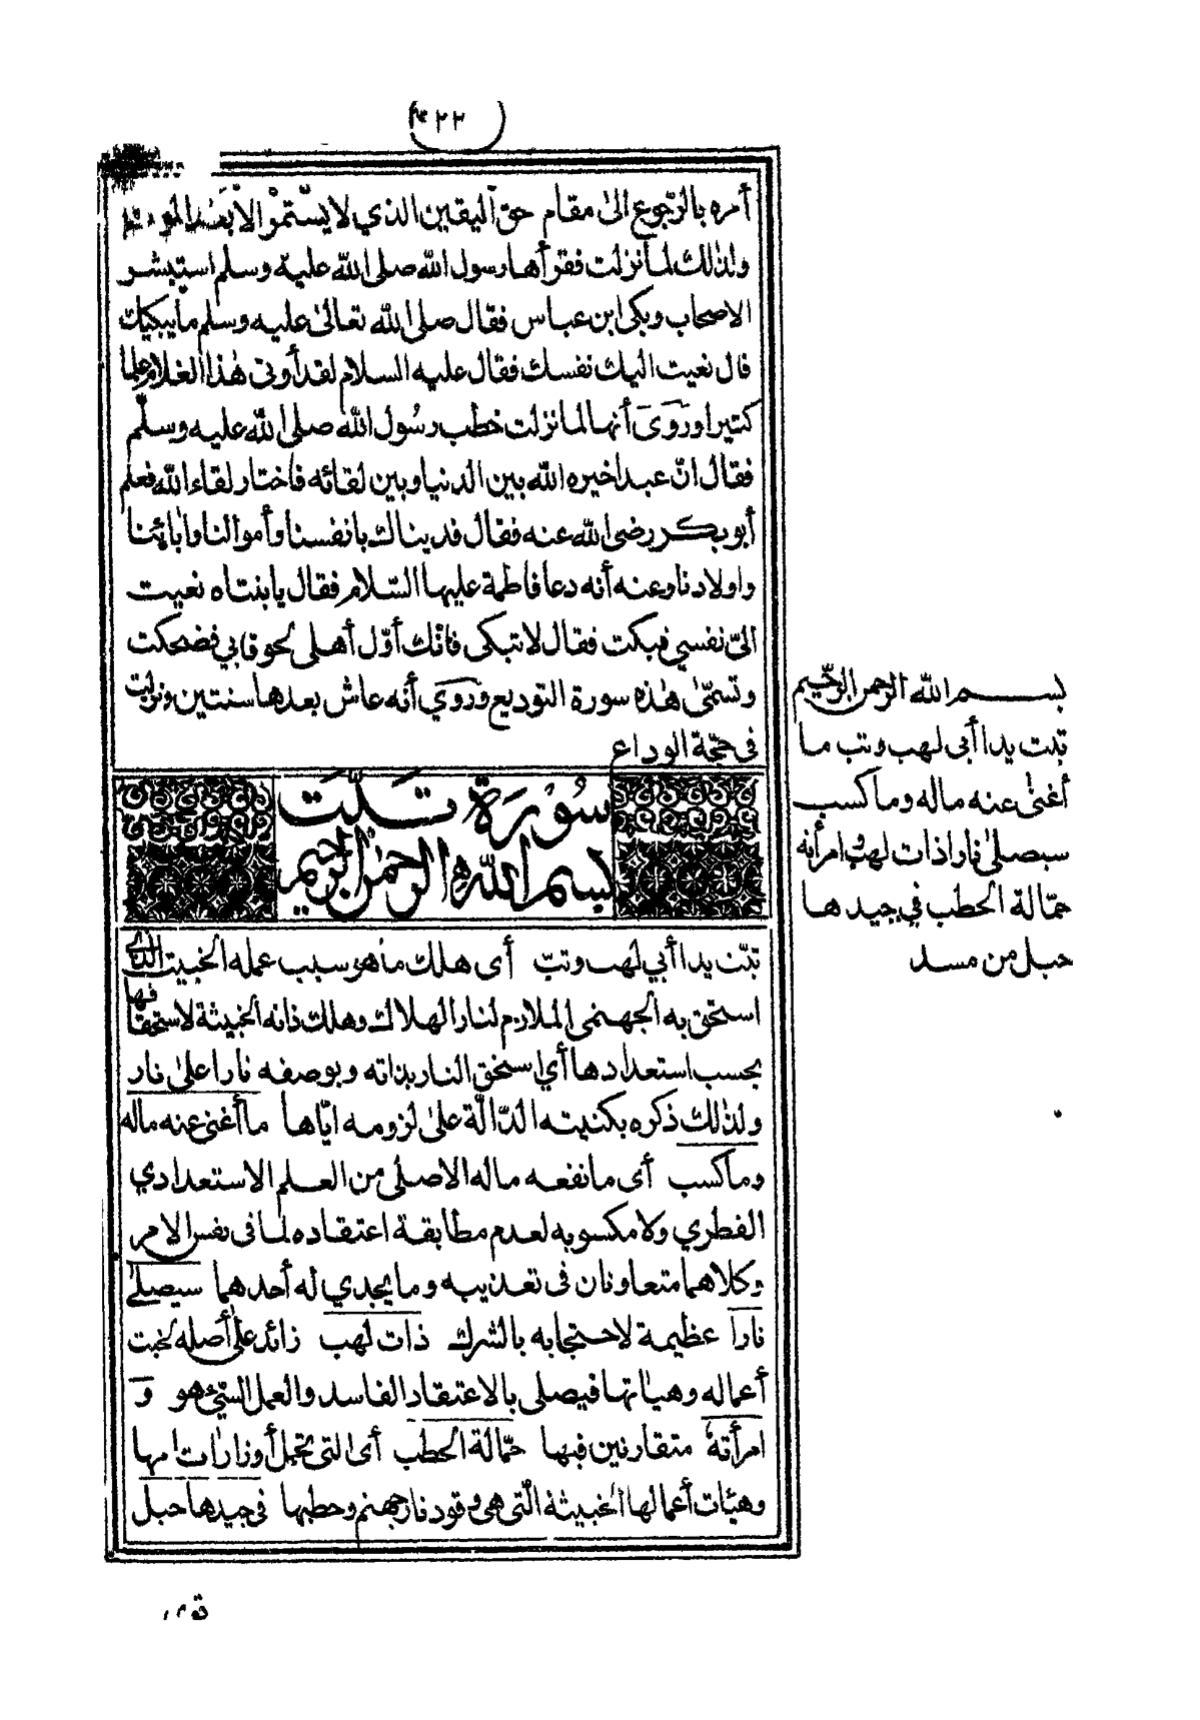 ٤٢٢
أمره بالرّجوع الى مقام حق اليقين الذي لا يستمر الا بعد الموت
ولذٰلك لما نزلت فقرأها رسول الله صلى الله عليه وسلم استبشر
الاصحاب وبكى ابن عباس فقال صلى الله تعالىٰ عليه وسلم ما يبكيك
قال نعيت اليك نفسك فقال عليه السلام لقد أوتى هٰذا الغلام علما
كثيرا وروى أنها لما نزلت خطب رسول الله صلى الله عليه وسلّم
فقال انّ عبدا خيره الله بين الدنيا وبين لقائه فاختار لقاء الله فعلم
أبو بكر رضى الله عنه فقال فديناك بانفسنا وأموالنا وابائنا
واولادنا وعنه أنه دعا فاطمة عليها السّلام فقال يا بنتاه نعيت
الىّ نفسي فبكت فقال لا تبكى فانّك أوّل أهلى لحوقا بي فضحكت
وتسمّىٰ هٰذه سورة التوديع وروي أنه عاش بعدها سنتين ونزلت
فى حجّة الوداع
سورة تبّت
بسم الله الرحمٰن الرحيم
تبّت يدا أبي لهب وتبّ أى هلك ما هو سبب عمله الخبيث الذي
استحق به الجهنمى الملازم لنار الهلاك وهلك ذاته الخبيثة لاستحقاقها
بحسب استعدادها أي استحق النار بذاته وبوصفه نارا علىٰ نار
ولذٰلك ذكره بكنيته الدّالّة علىٰ لزومه ايّاها ما أغنى عنه ماله
وما كسب أى ما نفعه ماله الاصلى من العلم الاستعدادي
الفطري ولا مكسوبه لعدم مطابقة اعتقاده لما فى نفس الامر
وكلاهما متعاونان فى تعذيبه وما يجدي له أحدهما سيصلىٰ
نارا عظيمة لاحتجابه بالشرك ذات لهب زائد علىٰ أصله لخبث
أعماله وهياٰتها فيصلى بالاعتقاد الفاسد والعمل السّيئ هو و
امرأته متقارنين فيها حمّالة الحطب أى التى تحمل أوزار اٰثامها
وهيئات أعمالها الخبيثة الّتى هى وقود نار جهنم وحطبها فى جيدها حبل
بسم الله الرحمن الرّحيم
تبت يدا أبى لهب وتب ما
أغنىٰ عنه ماله وما كسب
سيصلىٰ نارا ذات لهب وامرأته
حمّالة الحطب في جيدها
حبل من مسد